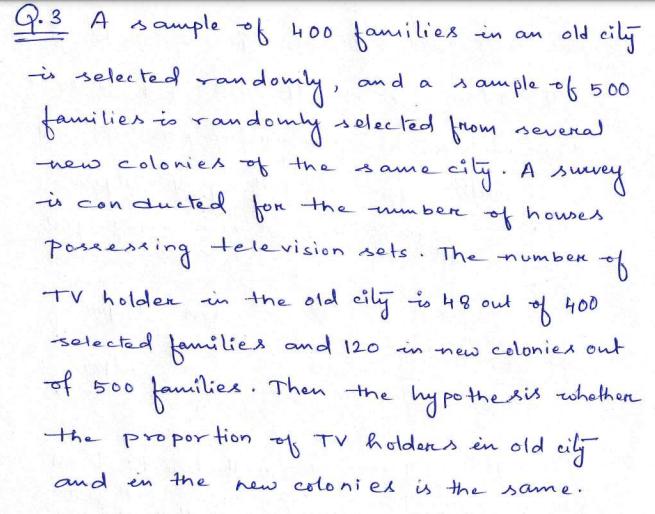 Q.3 A sample of 400 families in an old city
is selected randomly, and a sample of 500
families is randomly selected from several
new colonies of the same city. A survey
is conducted for the number of houses
possessing television sets. The number of
TV holder in the old city is 48 out of 400
selected families and 120 in new colonies out
of 500 families. Then the hypothesis whether
the proportion of TV holders in old city
and in the new colonies is the same.